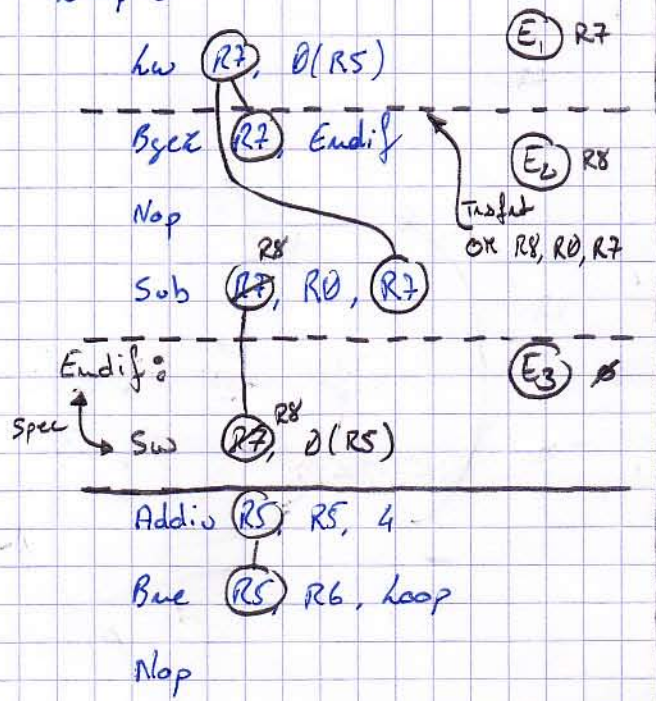 Lw R7, 0(R5)
E1 R7
Bgez R7, Endif
E2 R8
Nop
OR R8, R0, R7
R8
Sub R7, R0, R7
Endif:
E3 ø
Spec
R8
Sw R7, 0(R5)
Addiu R5, R5, 4
Bne R5, R6, Loop
Nop